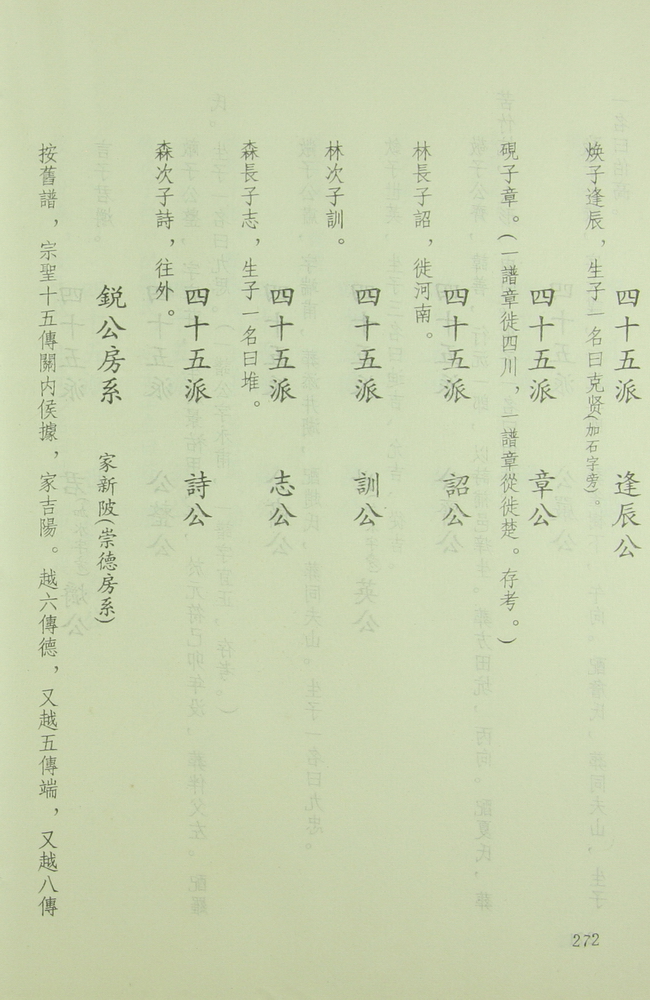 四十五派　逢辰公
煥子逢辰，生子一名曰克贤(加石字旁)。
四十五派　章公
硯子章。(一譜章徙四川，一譜章從徙楚。存考。)
四十五派　詔公
林長子詔，徙河南。
四十五派　訓公
林次子訓。
四十五派　志公
森長子志，生子一名曰堆。
四十五派　詩公
森次子詩，往外。
鋭公房系　家新陂(崇德房系)
按舊譜，宗聖十五傳關內侯據，家吉陽。越六傳德，又越五傳端，又越八傳
272